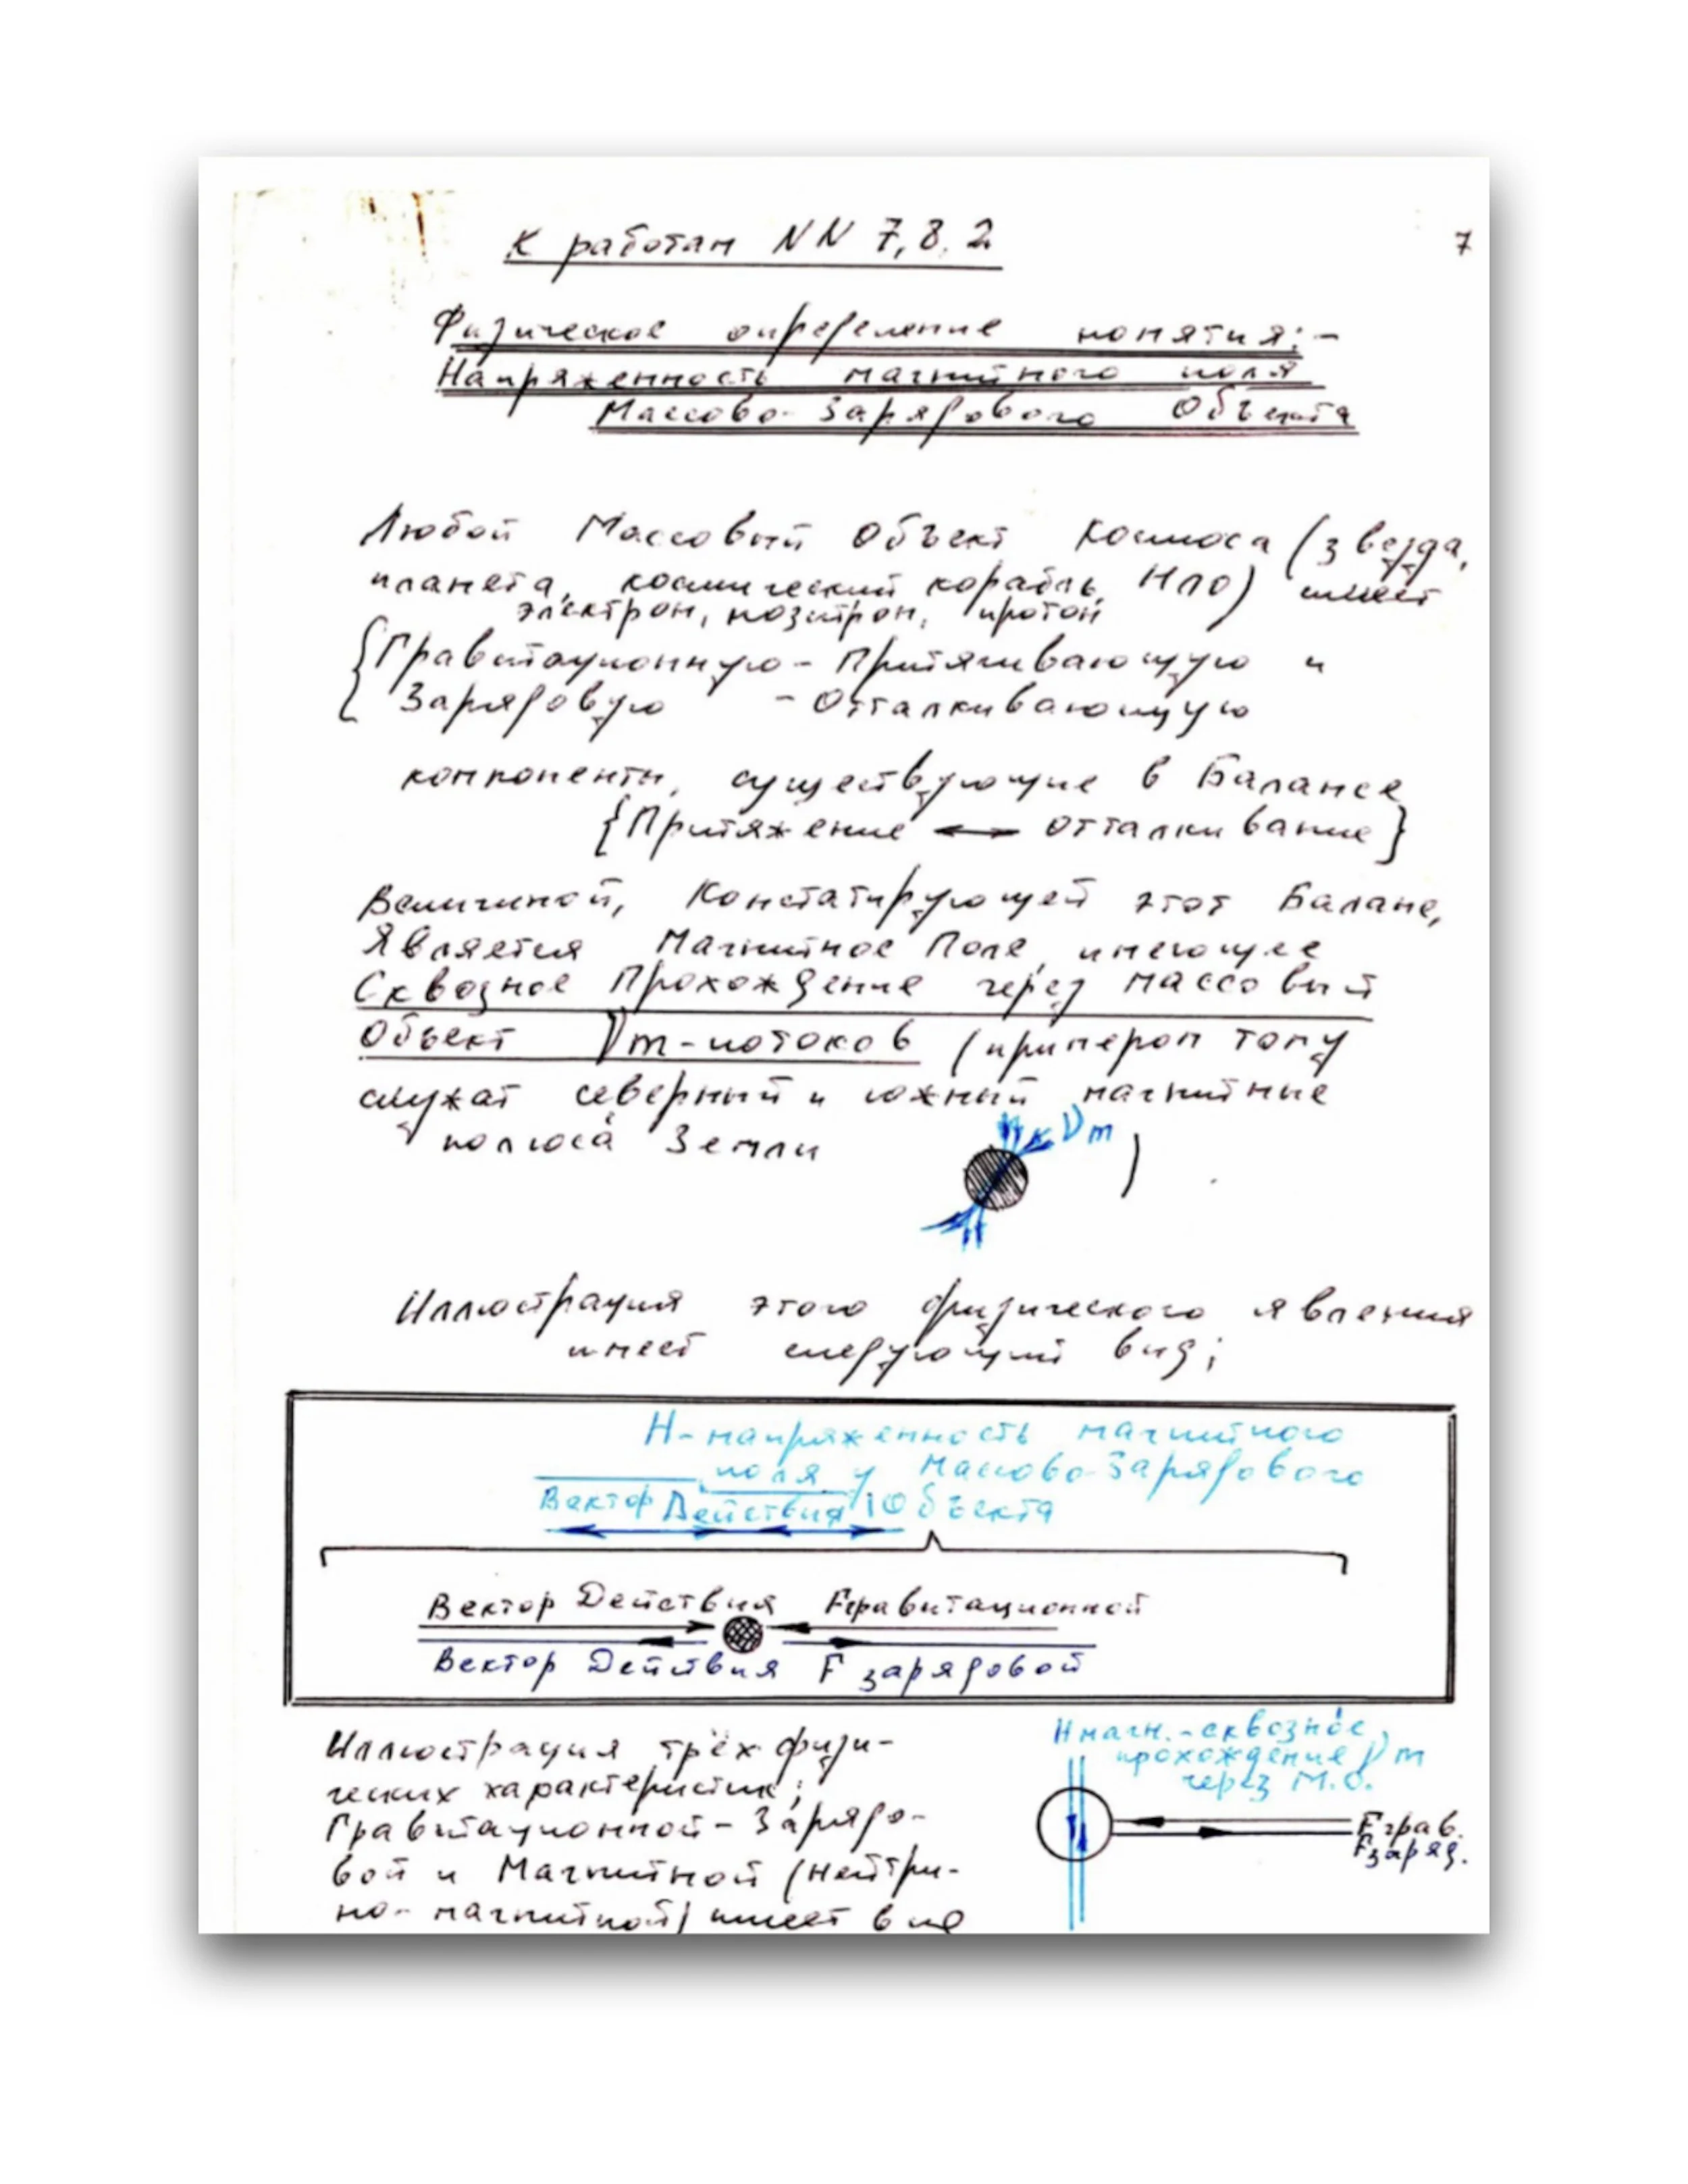 К работам NN 7, 8. 2
7
Физическое определение понятия:-
Напряженность магнитного поля
Массово-Зарядового Объекта
Любой Массовый Объект Космоса (звезда,
планета, космический корабль, НЛО) имеет
электрон, позитрон, протон
{Гравитационную - Притягивающую и
Зарядовую - Отталкивающую
компоненты, существующие в Балансе
{Притяжение ⟷ Отталкивание}
Величиной, Констатирующей этот Баланс,
Является Магнитное Поле, имеющее
Сквозное Прохождение через массовый
Объект νm-потоков (примером тому
служат северный и южный магнитные
полюса Земли
νm
)
Иллюстрация этого физического явления
имеет следующий вид;
Н-напряженность магнитного
поля у Массово-Зарядового
Вектор Действия Объекта
Вектор Действия Fгравитационной
Вектор Действия F зарядовой
Иллюстрация трёх физи-
ческих характеристик;
Гравитационной-Зарядо-
вой и Магнитной (нейтри-
но-магнитной) имеет вид
Нмагн.-сквозное,
прохождение νm
через М.О.
Fграв.
Fзаряд.